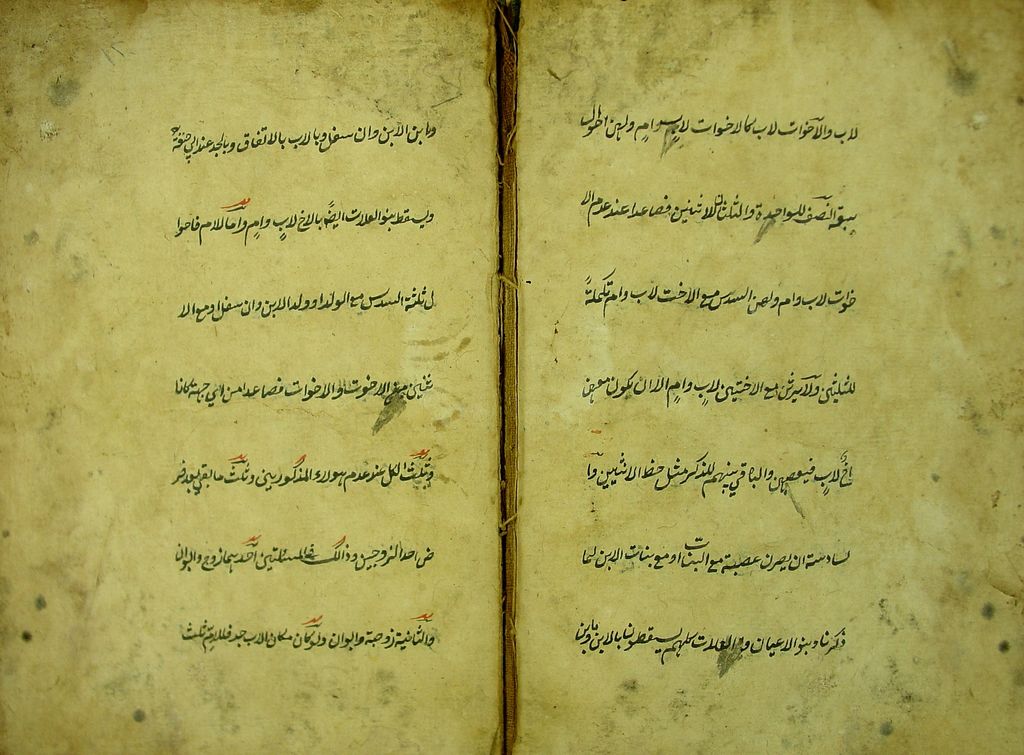 لاب والاخوات لاب كالاخوات لاب وام ولهن احوال
سبعة النصف للواحدة والثلثان للاثنتين فصاعدا عند عدم الا
خوات لاب وام ولهن السدس مع الاخت لاب وام تكملة
للثلثين ولا يرثن مع الاختين لاب وام الا ان يكون معهن
اخ لاب فيعصبهن والباقي بينهم للذكر مثل حظ الانثيين وا
لسادسة ان يصرن عصبة مع البنات او مع بنات الابن لما
ذكرنا وبنو الاعيان والعلات كلهم يسقطون بالابن وابن
وابن الابن وان سفل وبالاب بالاتفاق وبالجد عند ابي حنيفة
ويسقط بنو العلات ايضا بالاخ لاب وام واما للام فاحوا
ل ثلثة السدس مع الولد او ولد الابن وان سفل او مع الا
ثنين من الاخوت والاخوات فصاعدا من اي جهة كانا
وثلث الكل عند عدم هولاء المذكورين وثلث ما بقي بعد فر
ض احد الزوجين وذالك في المسئلتين احديهما زوج وابوان
والثانية زوجة وابوان ولو كان مكان الاب جد فللام ثلث